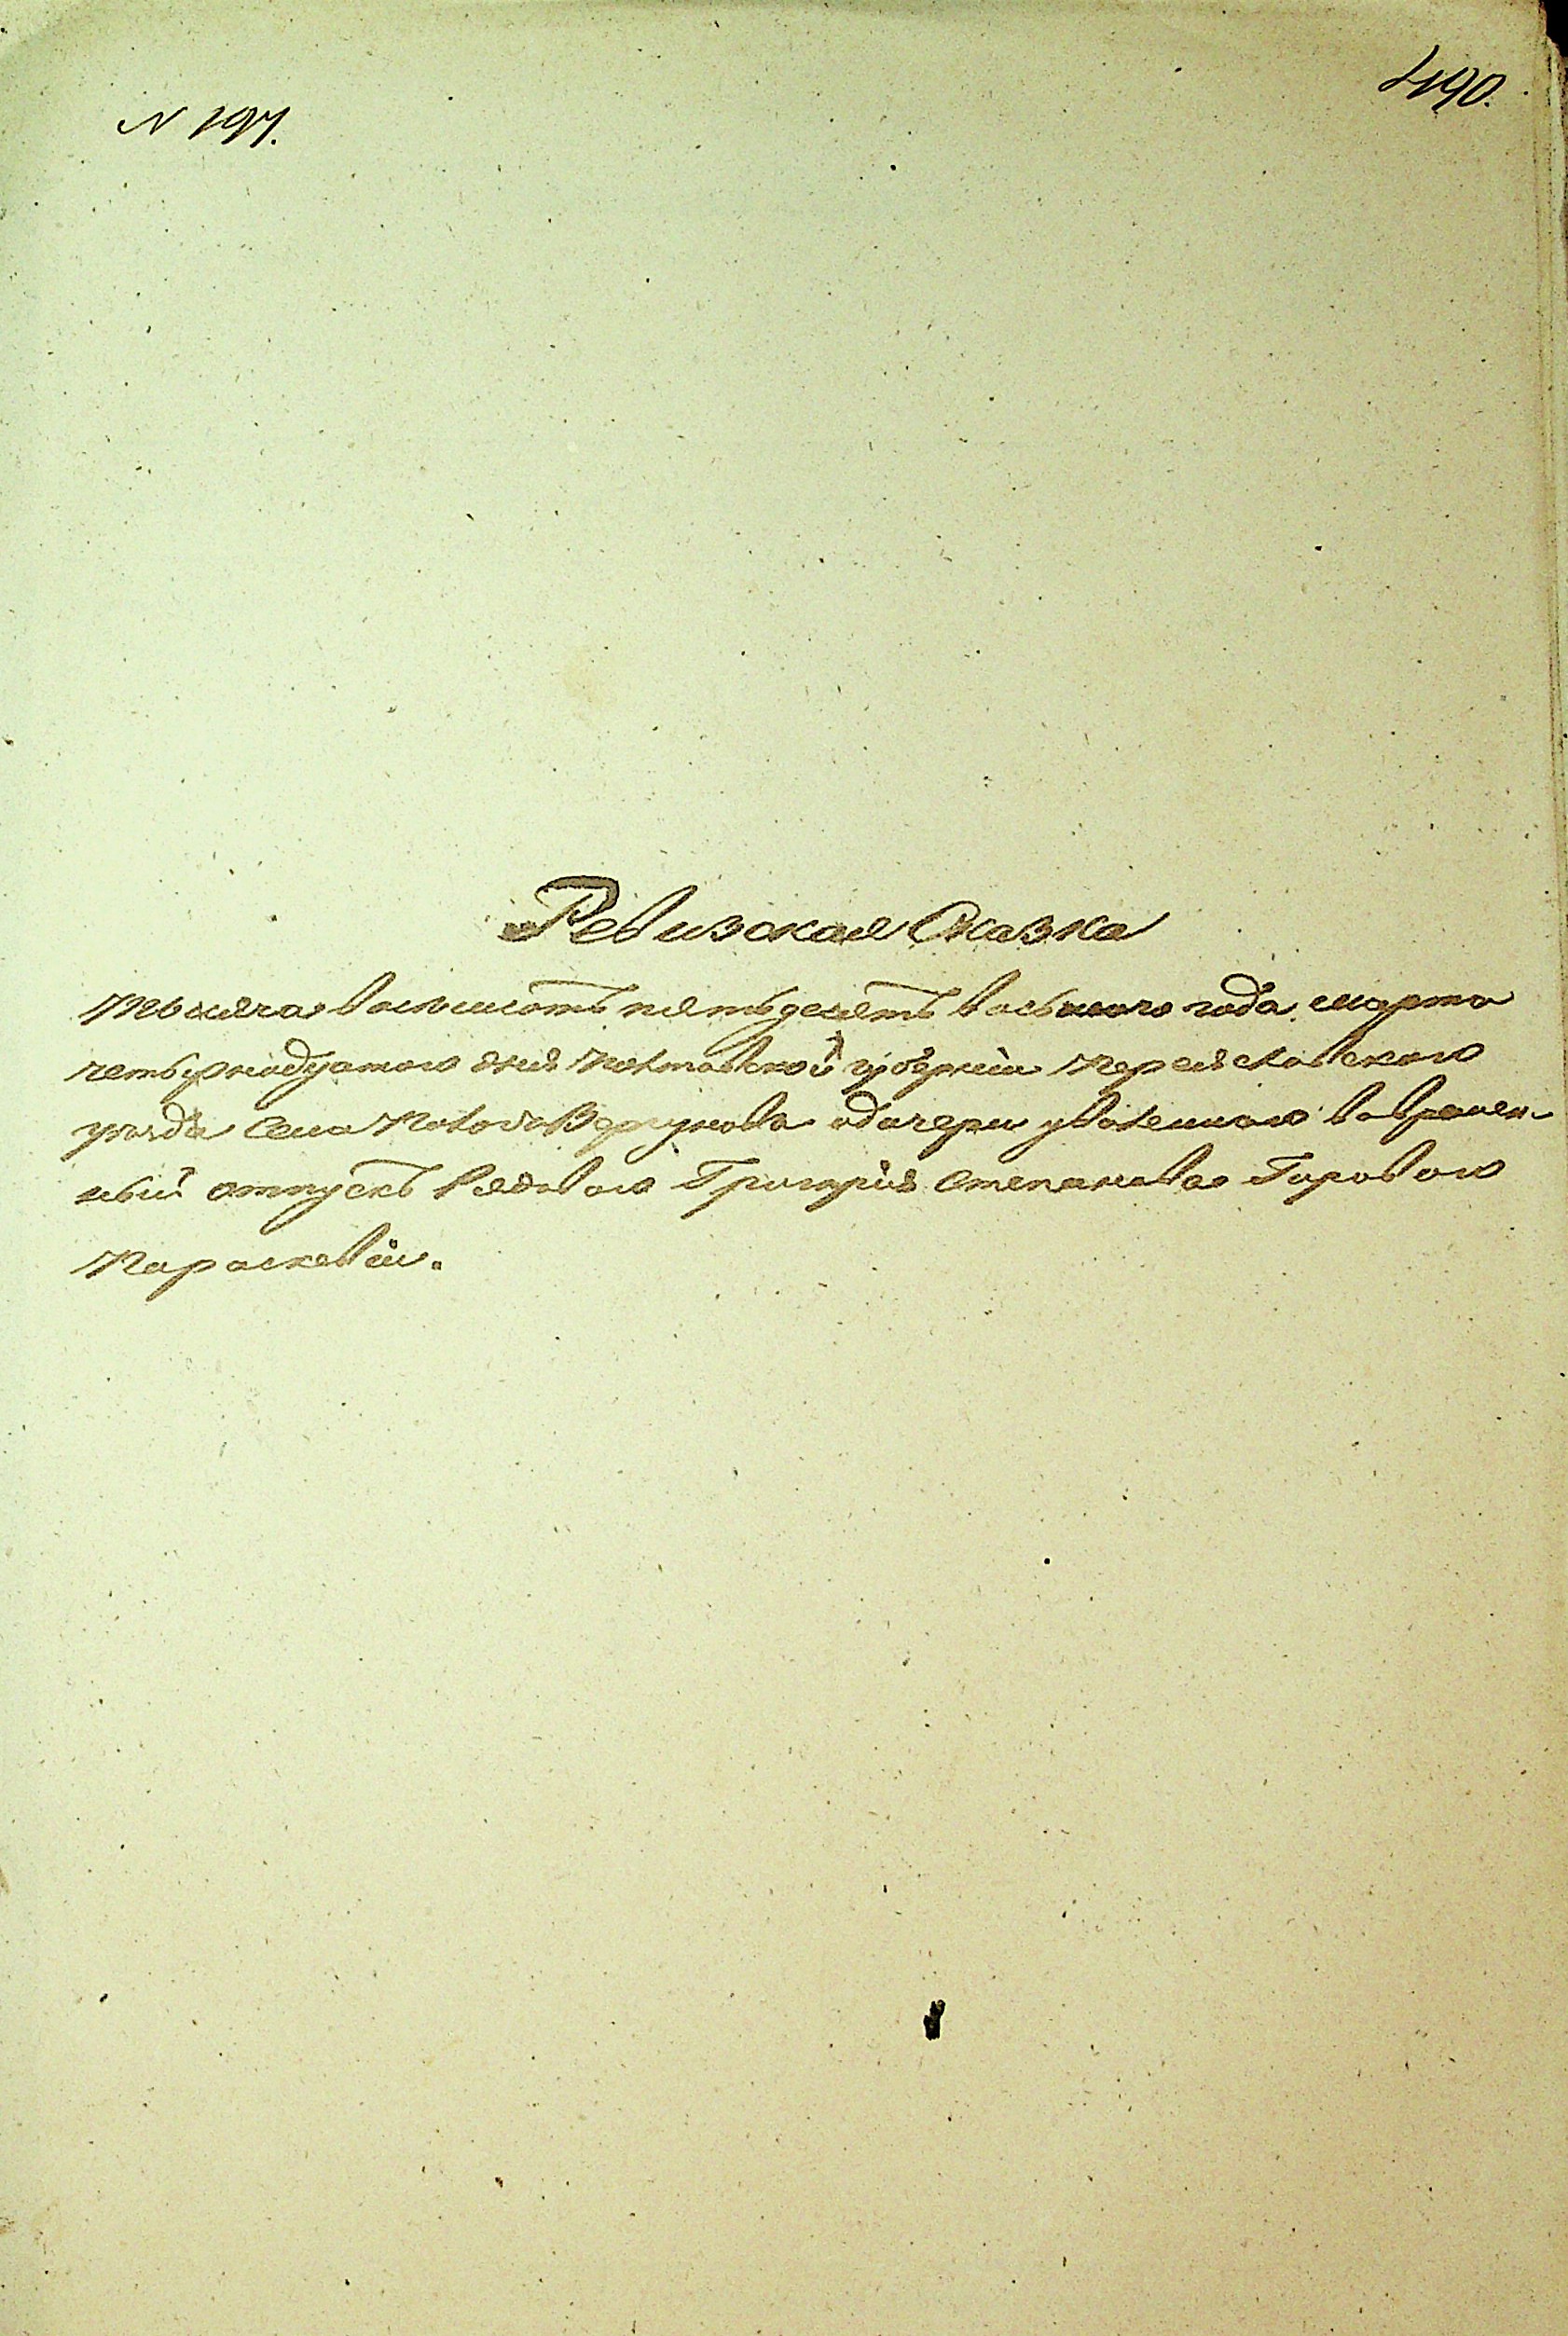 N 197.
490.
Ревизская Сказка
Тысяча восемьсотъ пятьдесятъ восьмого года марта
четырнадцатого дня Полтавской губерніи Переяславского
уезда Села Полога Вергуновъ одочери уволенного вовремен-
ный отпускъ Рядового Григорія Степанова Гирового
Параскевіи.